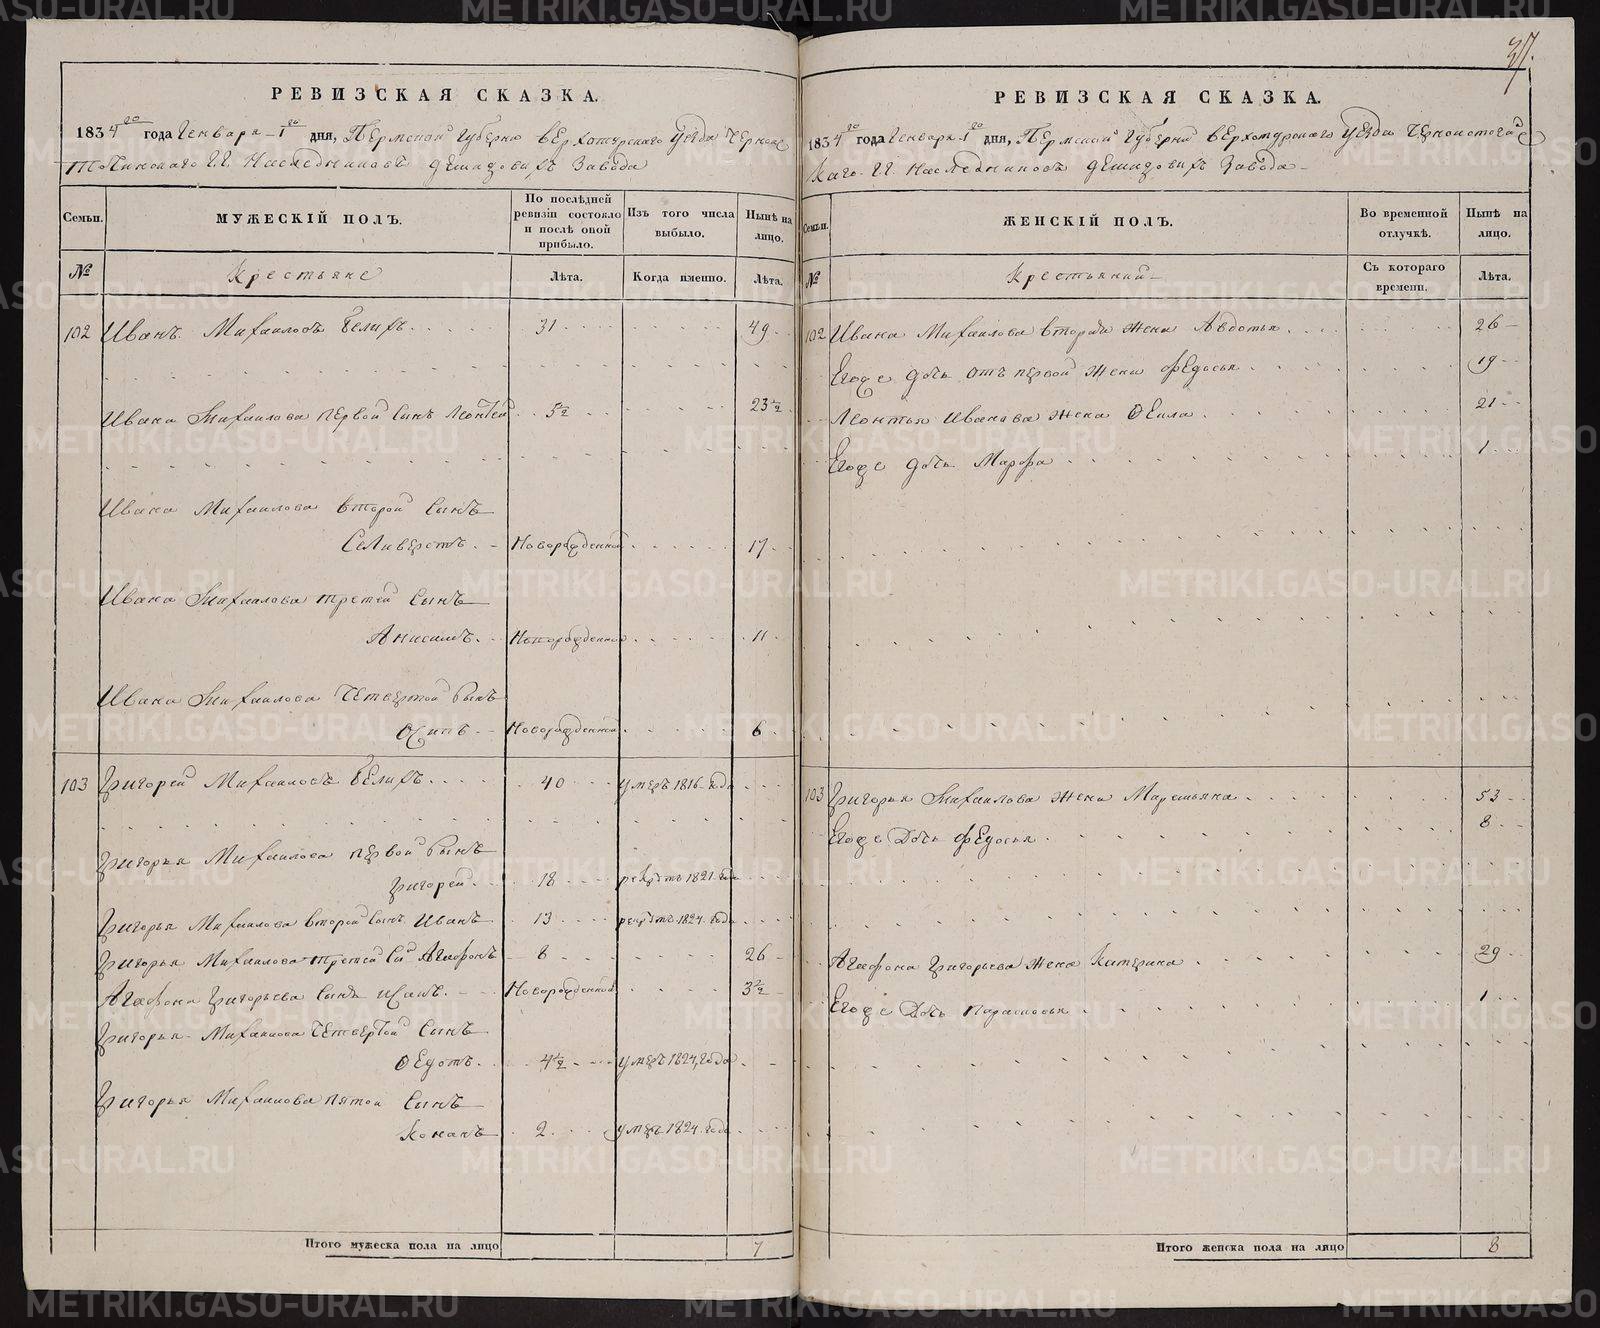 37.
РЕВИЗСКАЯ СКАЗКА.
1834го года Генваря 1го дня, Пермской Губернии Верхотурскаго Уезда Черноис
точинскаго Г.Г. Наследниковъ Демидовыхъ Завода
Семьи.
МУЖЕСКІЙ ПОЛЪ.
По послѣдней ревизіи состояло и послѣ оной прибыло.
Изъ того числа выбыло.
Нынѣ на лицо.
№
Крестьяне
Лѣта.
Когда именно.
Лѣта.
102 Иванъ Михаиловъ Белихъ 31 49
Ивана Михаилова первой сынъ Леонтей 5½ 23½
Ивана Михаилова второй сынъ
Селиверстъ Новорожденной 17
Ивана Михаилова третей сынъ
Анисимъ Новорожденной 11
Ивана Михаилова четвертой сынъ
Осипъ Новорожденной 6
103 Григорей Михаиловъ Белихъ 40 умеръ 1816 года
Григорья Михаилова первой сынъ
Григорей 18 рекрутъ 1821 года
Григорья Михаилова второй сынъ Иванъ 13 рекрутъ 1824 года
Григорья Михаилова третей сынъ Агафонъ 8 26
Агафона Григорьева сынъ Исакъ Новорожденной 3½
Григорья Михаилова четвертой сынъ
Ѳедотъ 4½ умеръ 1824 года
Григорья Михаилова пятой сынъ
Кононъ 2 умеръ 1824 года
Итого мужеска пола на лицо 7
РЕВИЗСКАЯ СКАЗКА.
1834го года Генваря 1го дня, Пермской Губернии Верхотурскаго Уезда Черноисточинс
каго Г.Г. Наследниковъ Демидовыхъ Завода
Семьи.
ЖЕНСКІЙ ПОЛЪ.
Во временной отлучкѣ.
Нынѣ на лицо.
№
Крестьянки
Съ котораго времени.
Лѣта.
102 Ивана Михаилова вторая жена Авдотья 26
Егоже дочь отъ первой жены Федосья 19
Леонтья Иванова жена Ѳекла 21
Егоже дочь Марфа 1
103 Григорья Михаилова жена Маремьяна 53
Егоже дочь Федосья 8
Агафона Григорьева жена Катерина 29
Егоже дочь Парасковья 1
Итого женска пола на лицо 8
METRIKI.GASO-URAL.RU